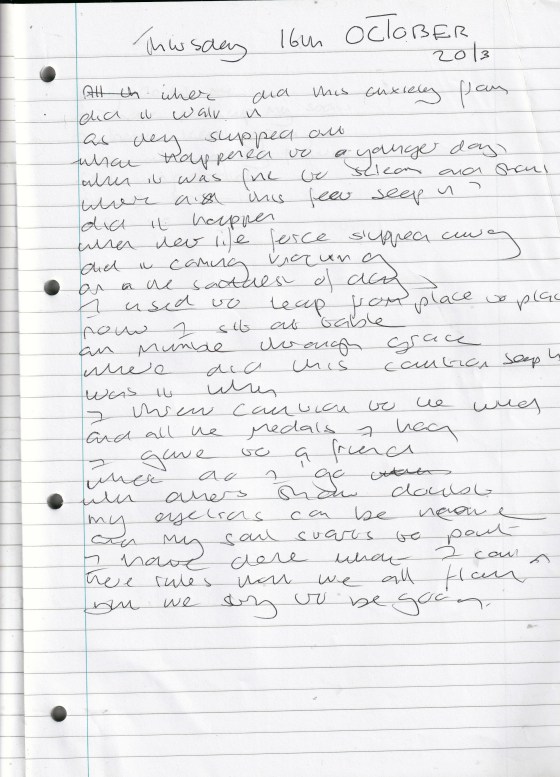 Thursday 16th OCTOBER
2013
where did this anxiety from
did it walk in
as they slipped out
what happened to a younger day
when it was fine to scream and shout
where did this fear seep in?
did it happen
when her life force slipped away
did it coming
on the saddest of day
I used to leap from place to plac
now I sit at table
an mumble through grace
where did this caution seep in
was it when
I threw caution to the wind
and all the medals I had
I gave to a friend
where do I go
when others show doubt
my can be
my soul starts to
I have done what I
these rules that we all
we to be